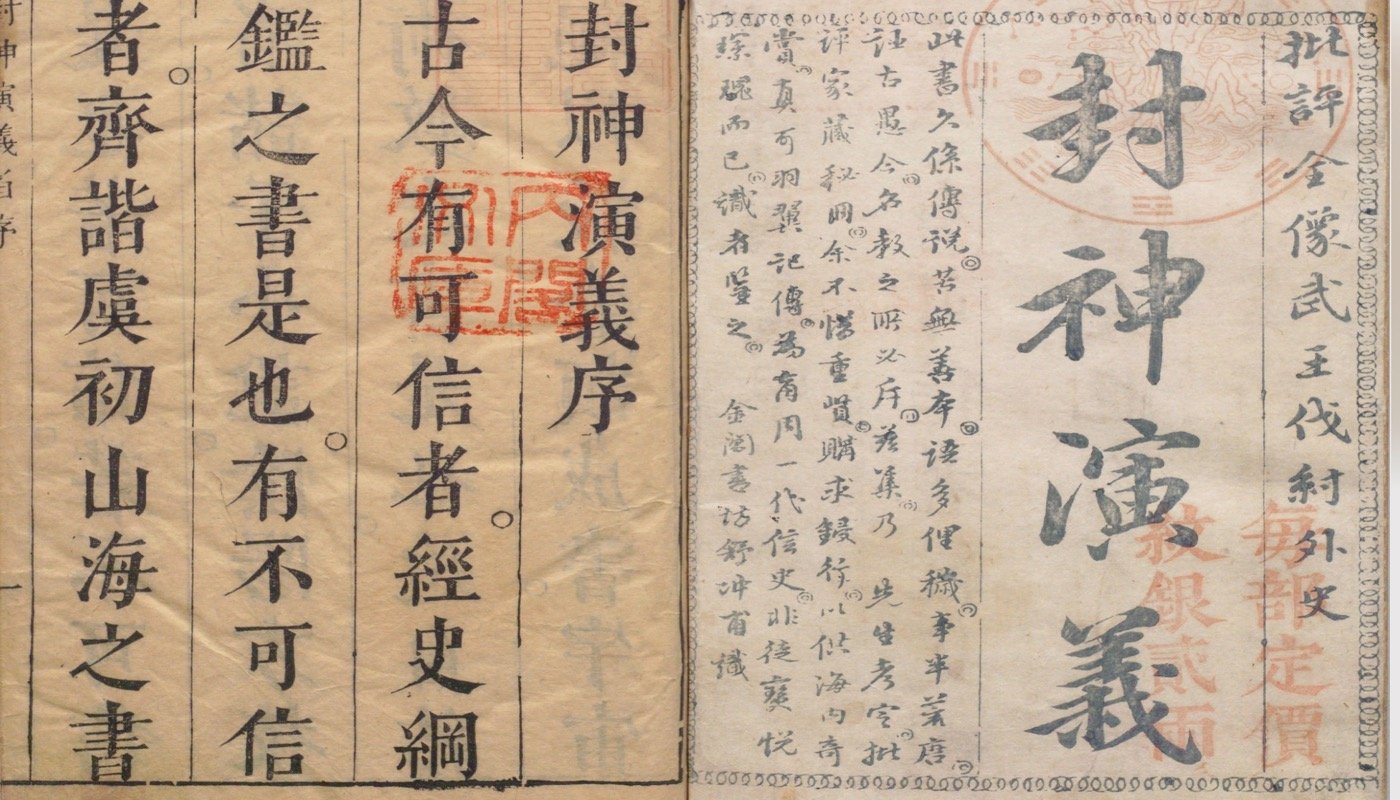 批評全像武王伐紂外史
每部定價
紋銀貳兩
封神演義
此書久係傳說。苦無善本。語多俚穢。事半荒唐。
誣古愚今。名教之所必斥。茲集乃 先生考定。批
評家藏秘冊。余不惜重貲。購求鋟行。以供海內奇
賞。真可羽翼記傳。為商周一代信史。非徒寶悅
琛瑰而已。識者鑒之。 金閶書坊舒冲甫識
封神演義序
內閣文庫
古今有可信者。經史綱
鑑之書是也。有不可信
者。齊諧虞初山海之書
封神演義 序 一